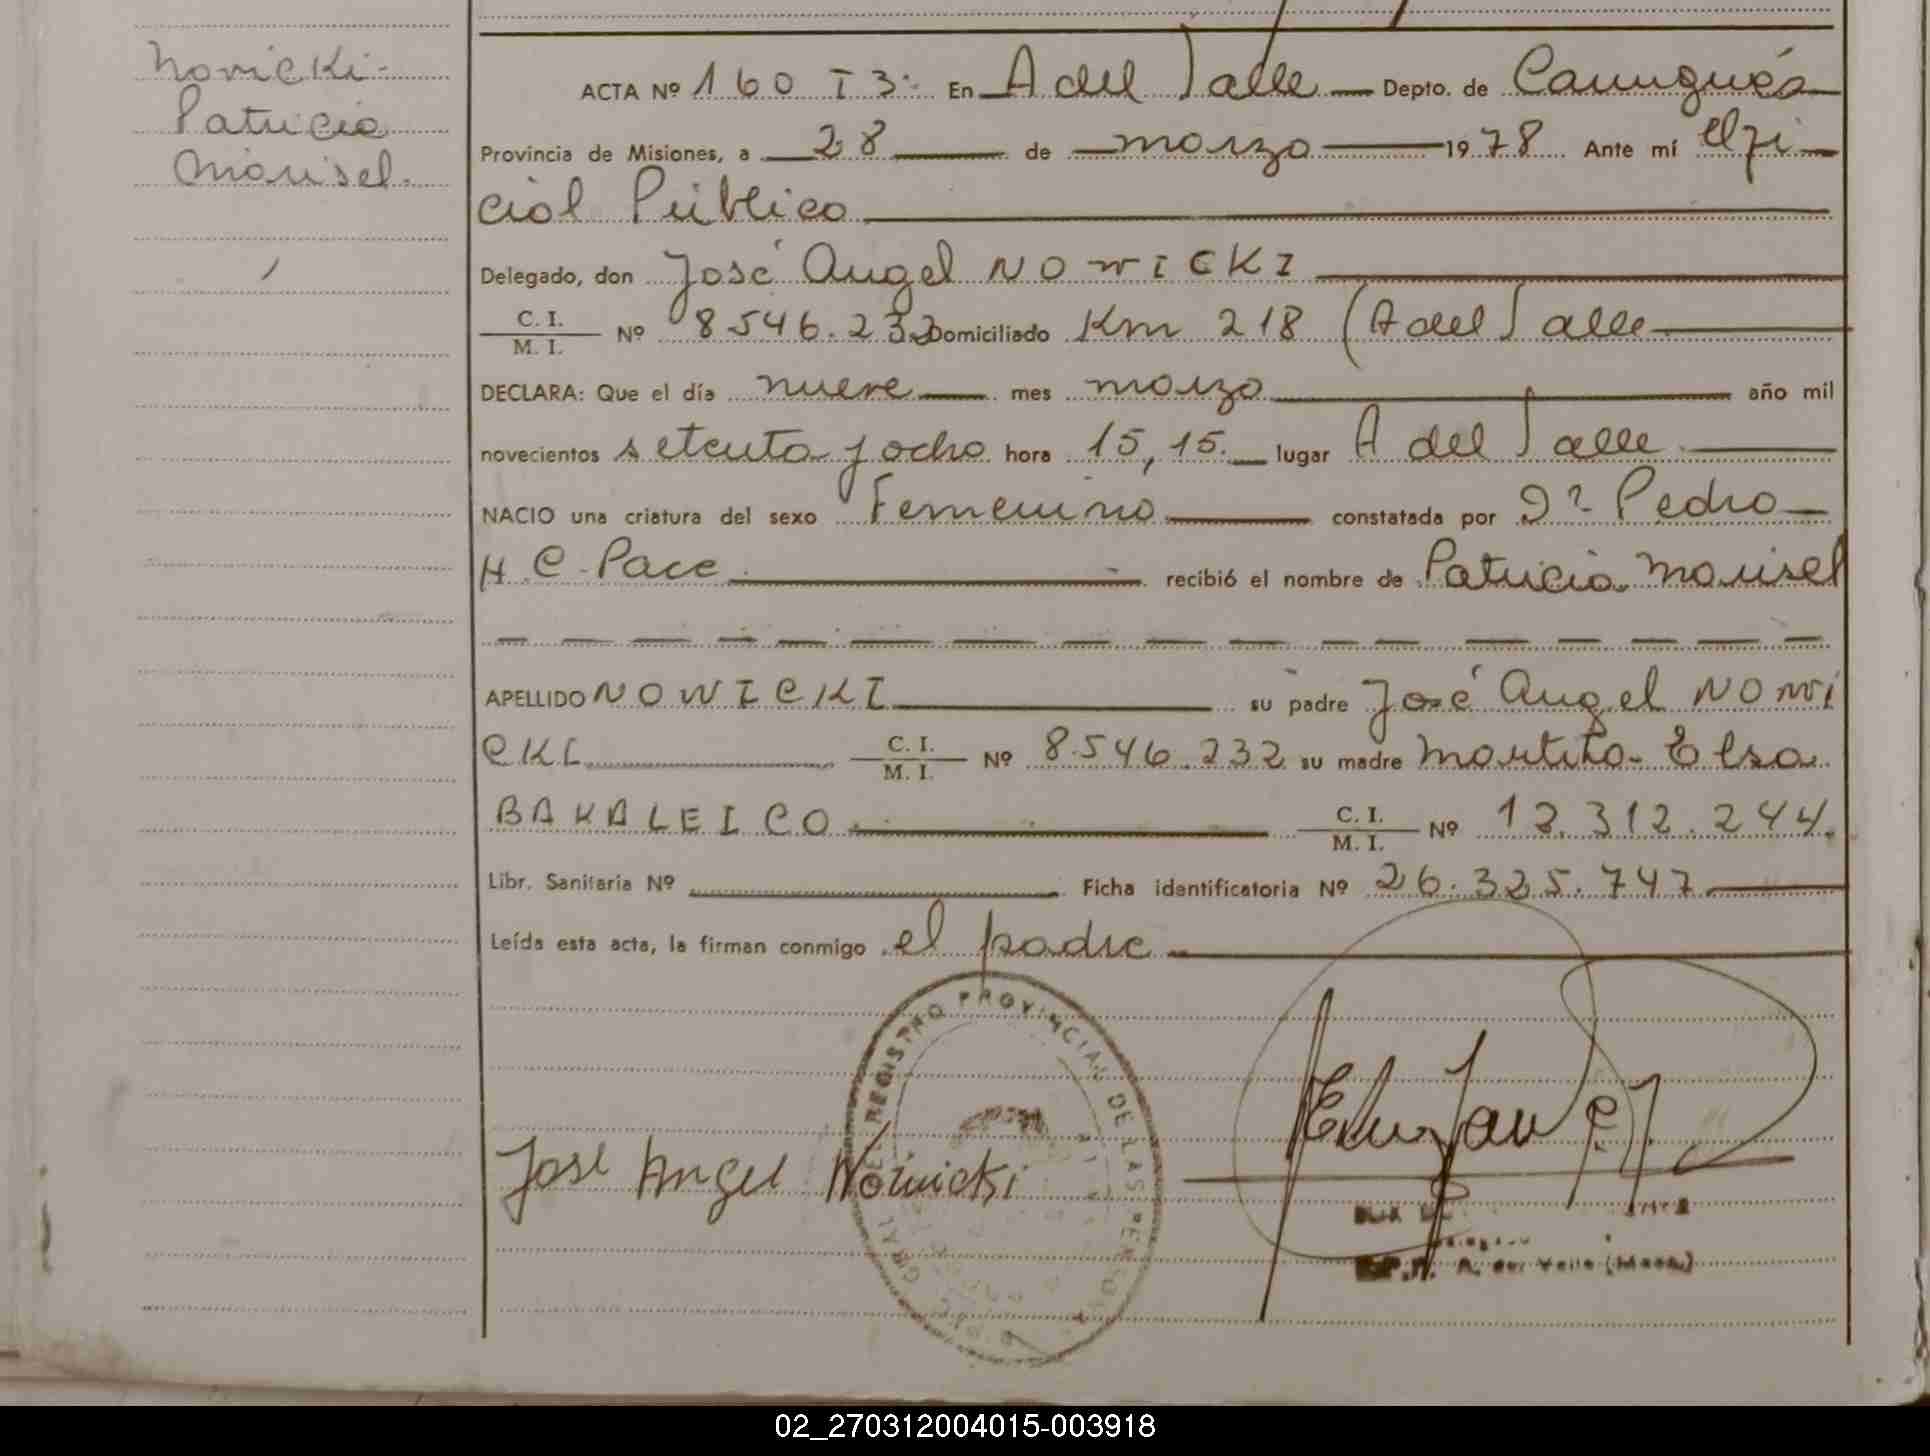 Novicki-
Patricia
Marisel.
ACTA Nº 160 T 3: En A del Valle Depto. de Cainguás
Provincia de Misiones, a 28 de marzo 1978 Ante mí el fi
cial Público
Delegado, don José Angel NOWICKI
C. I.
M. I. Nº 8546.232 Domiciliado Km 218 (A del Valle
DECLARA: Que el día nueve mes marzo año mil
novecientos setenta y ocho hora 15,15. lugar A del Valle
NACIO una criatura del sexo Femenino constatada por Dr Pedro
H. C. Pace recibió el nombre de Patricia Marisel
APELLIDO NOWICKI su padre José Angel NOWI
CKI C. I.
M. I. Nº 8.546.232 su madre Martita Elsa
BAKALEICO C. I.
M. I. Nº 12.312.244.
Libr. Sanitaria Nº Ficha identificatoria Nº 26.325.747
Leída esta acta, la firman conmigo el padre
REGISTRO PROVINCIAL DE LAS PERSONAS
José Angel Nowicki
A. del Valle (Mnes.)
02_270312004015-003918